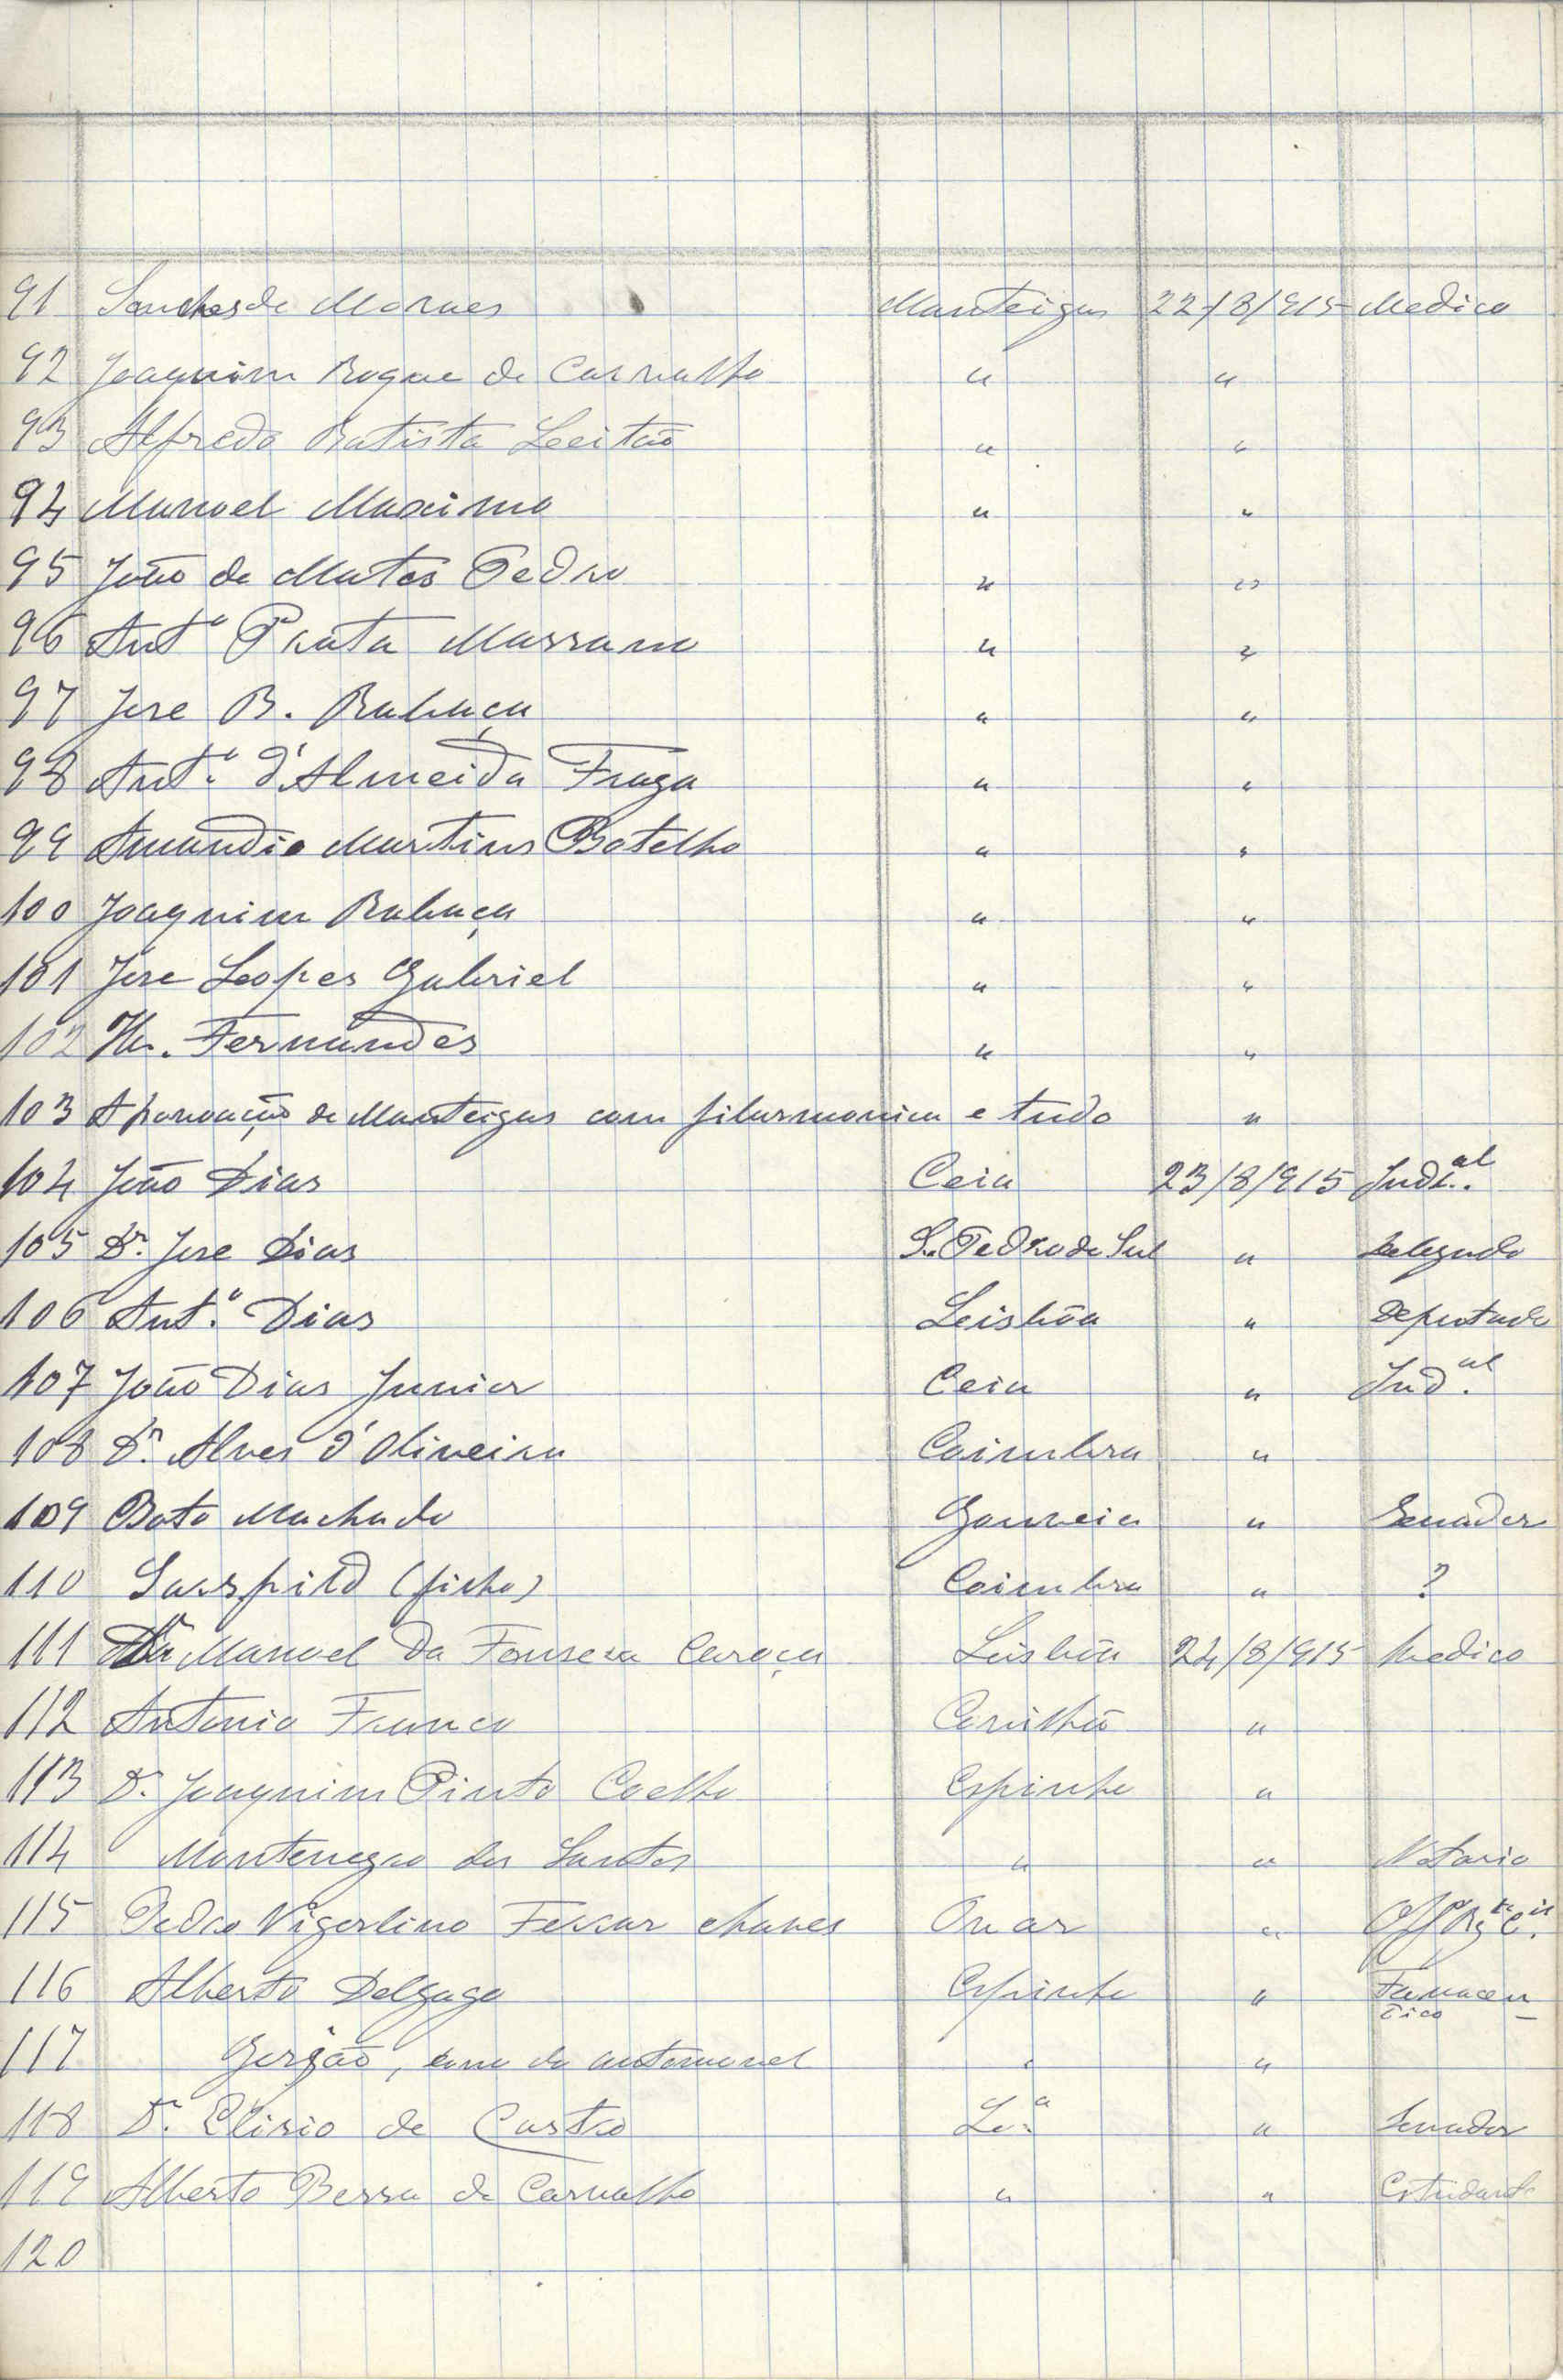 91 Sanches de Moraes Manteigas 22/8/915 Medico
92 Joaquim Roque de Carvalho " "
93 Alfredo Batista Leitão " "
94 Manoel Maximo " "
95 João de Matos Pedro " "
96 Antº Prata Massano " "
97 Jose B. Rabaça " "
98 Antº d'Almeida Fraga " "
99 Amandio Martins Botelho " "
100 Joaquim Rabaça " "
101 Jose Lopes Gabriel " "
102 Fernandes " "
103 A povoação de Manteigas com filarmonica e tudo "
104 João Dias Ceia 23/8/915 Indal.
105 Dr. Jose Dias S. Pedro do Sul " Delegado
106 Antº Dias Leisbôa " Deputado
107 João Dias Junior Ceia " Ind.al
108 Dr. Alves d'Oliveira Coimbra "
109 Boto Machado Gouveia " Senador
110 (filho) Coimbra " ?
111 Dr Manoel da Fonseca Caroça Lisbôa 24/8/915 Medico
112 Antonio Franco Covilhã "
113 Dr. Joaquim Pinto Coelho Espinho "
114 Montenegro dos Santos " " Notario
115 Pedro Vigorlino Ferrar Chaves Ovar "
116 Alberto Delgago Espinho " Farmaceu
tico
117 , dono do automovel " "
118 Dr. Elisio de Castro Le.a " Senador
119 Alberto Bessa de Carvalho " " Estudante
120